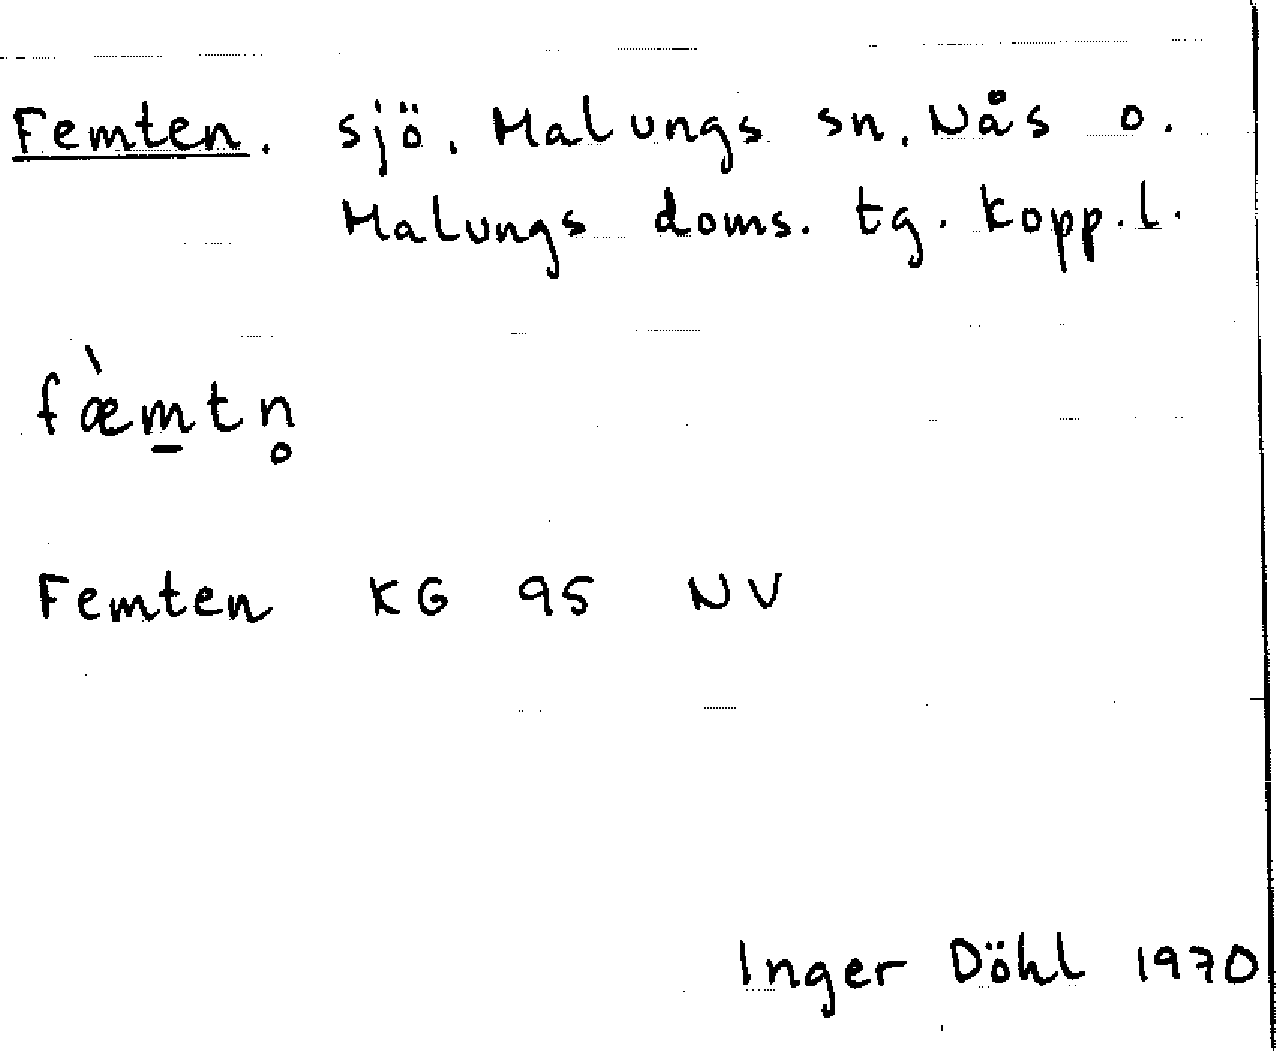 Femten. sjö. Malungs sn. Nås o.
Malungs doms. tg. Kopp.l.
fæ̀m̱tn̥
Femten KG 95 NV
Inger Döhl 1970